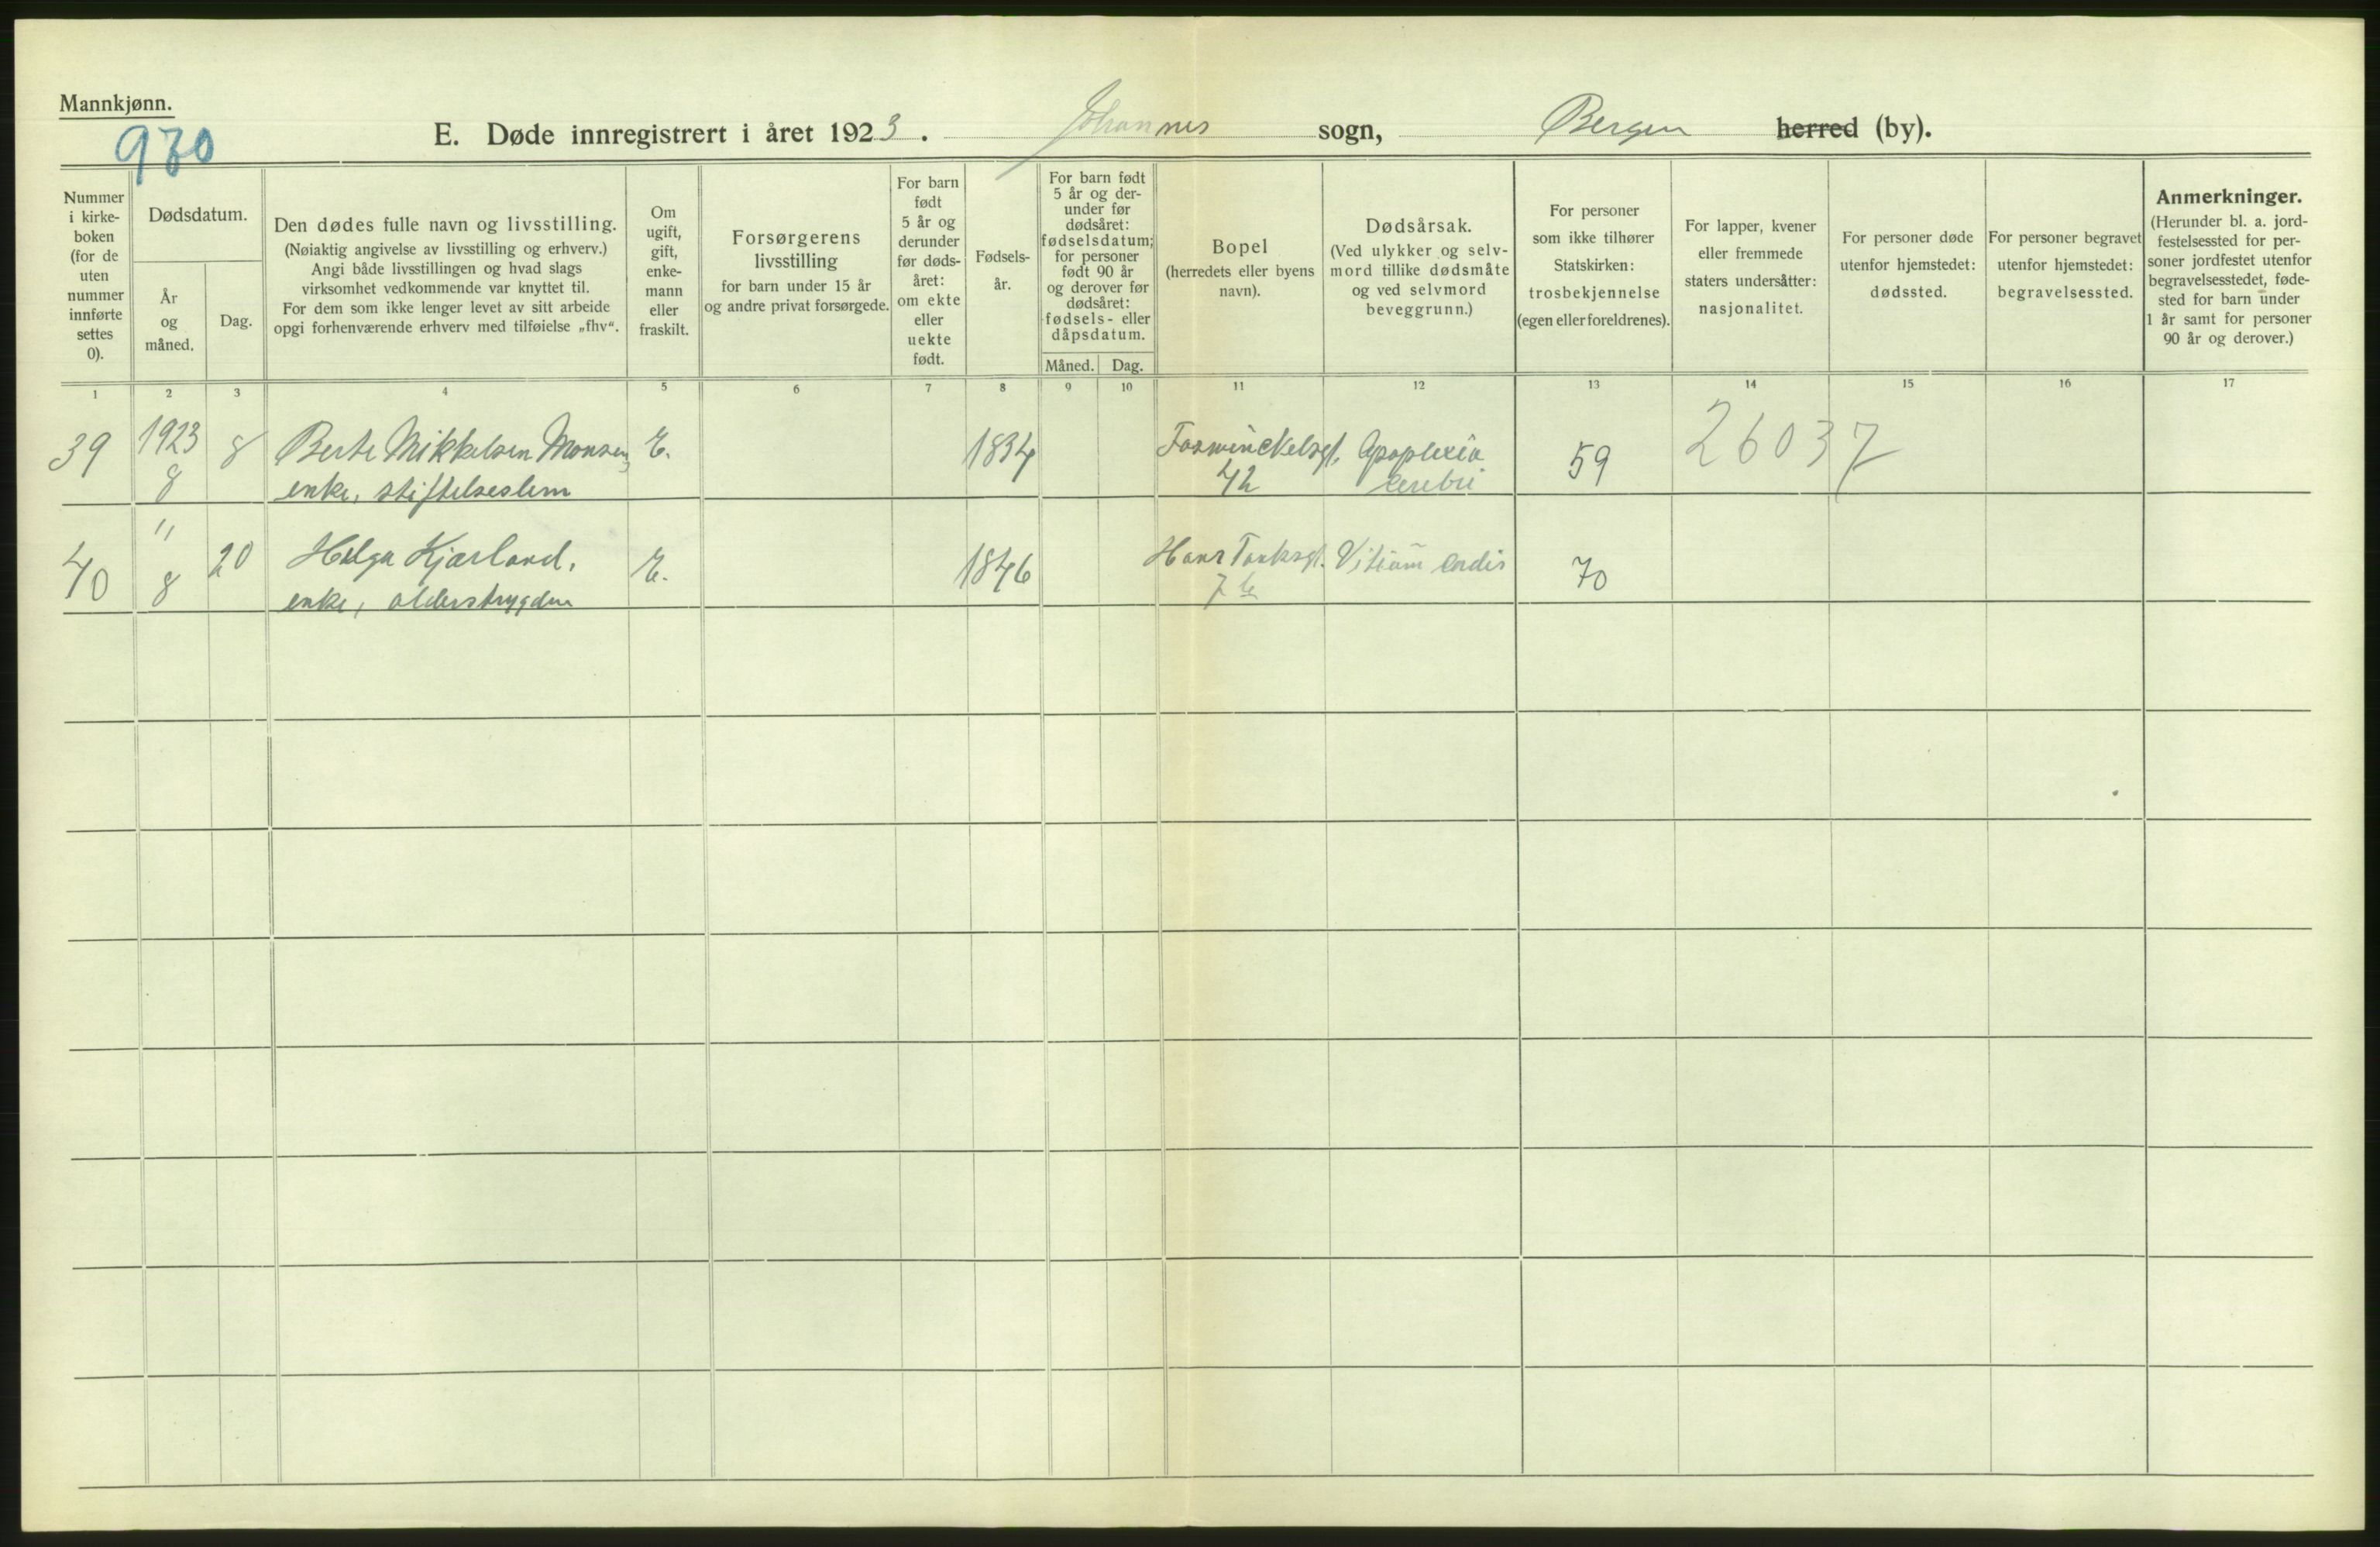 Mannkjønn.
970
E. Døde innregistrert i året 1923. Johannes sogn, Bergen herred (by).
Nummer
i kirke-
boken
(for de
uten
nummer
innførte
settes
0).
Dødsdatum.
År
og
måned.
Dag.
Den dødes fulle navn og livsstilling.
(Nøiaktig angivelse av livsstilling og erhverv.)
Angi både livsstillingen og hvad slags
virksomhet vedkommende var knyttet til.
For dem som ikke lenger levet av sitt arbeide
opgi forhenværende erhverv med tilføielse „fhv“.
Om
ugift,
gift,
enke-
mann
eller
fraskilt.
Forsørgerens
livsstilling
for barn under 15 år
og andre privat forsørgede.
For barn
født
5 år og
derunder
før døds-
året:
om ekte
eller
uekte
født.
Fødsels-
år.
For barn født
5 år og der-
under før
dødsåret:
fødselsdatum;
for personer
født 90 år
og derover før
dødsåret:
fødsels- eller
dåpsdatum.
Måned. Dag.
Bopel
(herredets eller byens
navn).
Dødsårsak.
(Ved ulykker og selv-
mord tillike dødsmåte
og ved selvmord
beveggrunn.)
For personer
som ikke tilhører
Statskirken:
trosbekjennelse
(egen eller foreldrenes).
For lapper, kvener
eller fremmede
staters undersåtter:
nasjonalitet.
For personer døde
utenfor hjemstedet:
dødssted.
For personer begravet
utenfor hjemstedet:
begravelsessted.
Anmerkninger.
(Herunder bl. a. jord-
festelsessted for per-
soner jordfestet utenfor
begravelsesstedet, føde-
sted for barn under
1 år samt for personer
90 år og derover.)
1 2 3 4 5 6 7 8 9 10 11 12 13 14 15 16 17
39 1923 8 Berte Mikkelsen Monsen, E. 1834 Foswinckelsgt. Apoplexia 59 26037
8 enke, stiftelseslem 42 cerebri
40 " 20 Helga Kjærland, E. 1846 Hans Tanksgt. Vitium cordis 70
8 enke, alderstrygden 7